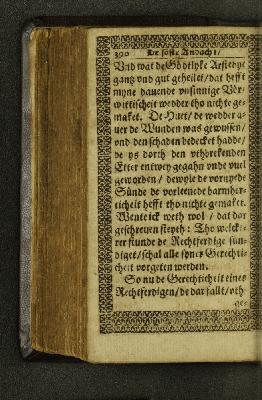 390 De söste Andacht /
Vnd wat de Gödtlyke Arstedye
gantz vnd gut geheilet / dat hefft
myne dauende vnsinnige Vör-
wittischeit wedder tho nichte ge-
maket. De Huet / de wedder a-
uer de Wunden was gewussen /
vnd den schaden bedecket hadde /
de ys dorch den vthbrekenden
Etter entwey gegahn vnde vuel
geworden / dewyle de
Sünde de vorleenede barmher-
ticheit hefft tho nichte gemaket.
Wente ick weth wol / dat dar
geschreuen steyth: Tho welcke-
rer stunde de Rechtferdige sün-
diget / schal alle syner Gerechti-
cheit vorgeten werden.
So nu de Gerechticheit eines
Rechtferdigen / de dar fallt / oth
ge-